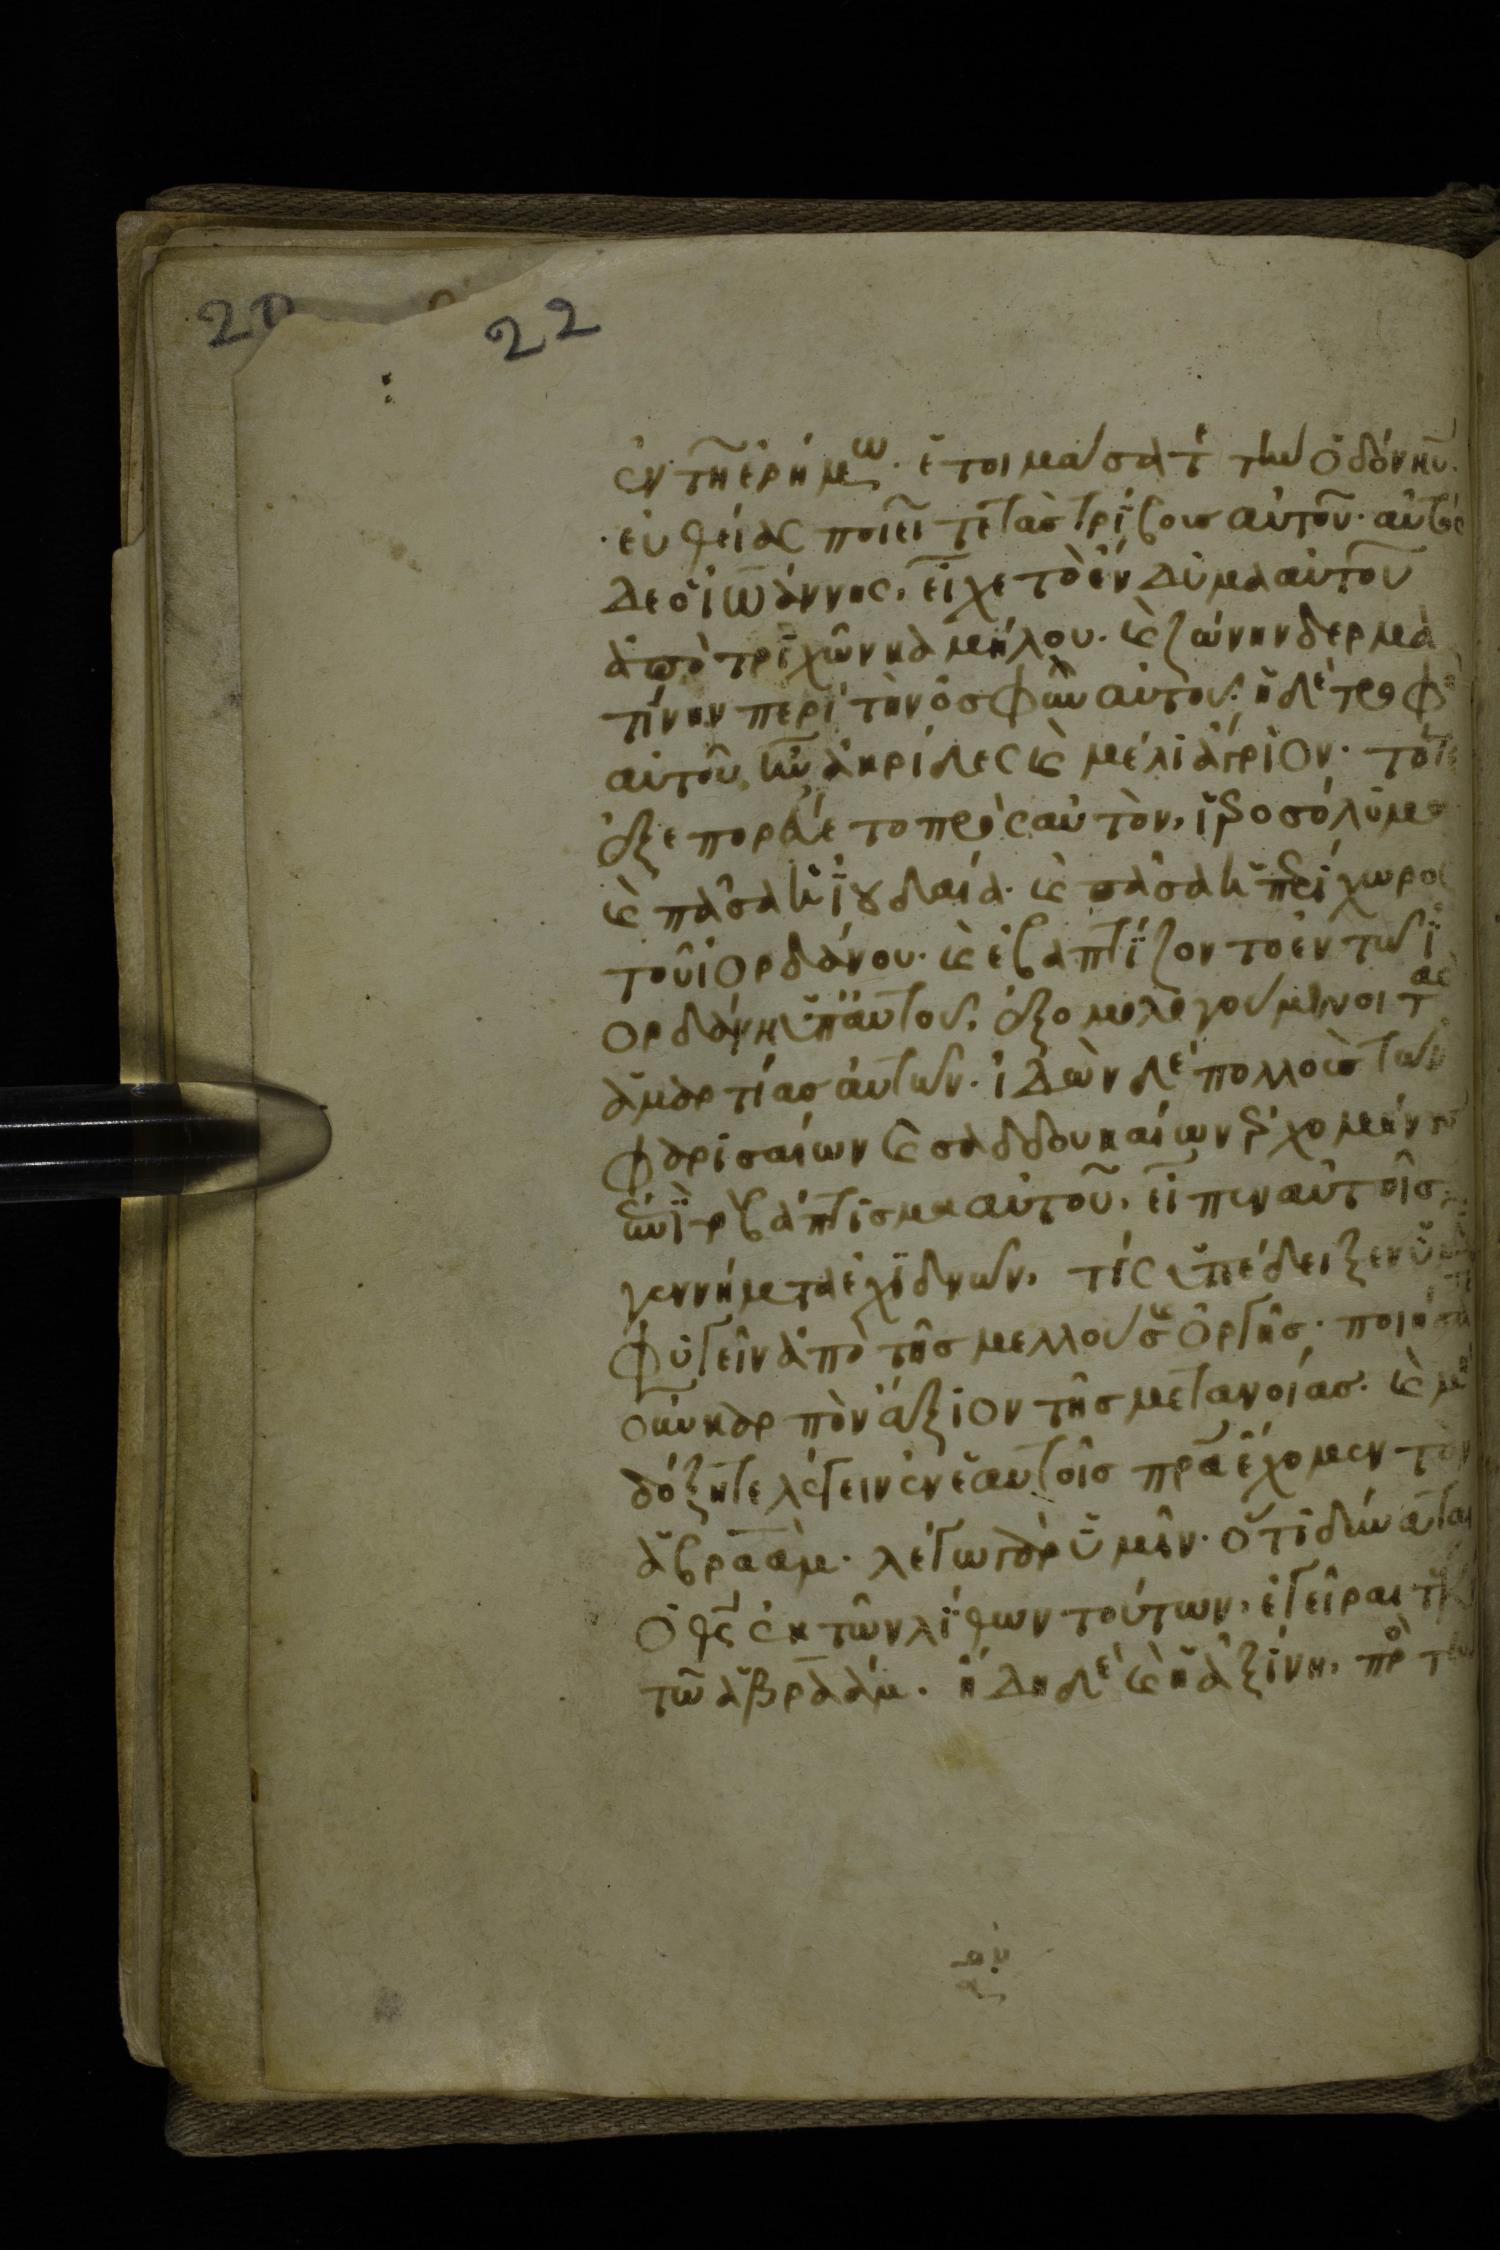 20
22
ἐν τῆ ἐρήμω. ἑτοιμάσατε τὴν ὁδόν κυ.
εὐθείας ποιεῖτε τὰς τρίβους αὐτοῦ. αὐτὸς
δὲ ὁ ἰωάννης, εἶχε τὸ ἔνδυμα αὐτοῦ
ἀπὸ τριχῶν καμήλου. κὲ ζώνην δερμα
τίνην περὶ τὴν ὀσφὺν αὐτοῦ. ἡ δὲ τροφὴ
αὐτοῦ ἦν ἀκρίδες κὲ μέλι ἄγριον. τότε
ἐξεπορεύετο πρὸς αὐτὸν, ἱεροσόλυμα
κὲ πᾶσα ἡ ἰουδαία. κὲ πᾶσα ἡ περίχωρος
τοῦ ἰορδάνου. κὲ ἐβαπτίζοντο ἐν τῶ ἰ
ορδάνη ὑπ' αὐτοῦ, ἐξομολογούμενοι τὰς
ἁμαρτίας αὐτῶν. ἰδὼν δὲ πολλοὺς τῶν
φαρισαίων κὲ σαδδουκαίων ἐρχομένους
ἐπὶ τὸ βάπτισμα αὐτοῦ, εἶπεν αὐτοῖς.
γεννήματα ἐχιδνῶν, τίς ὑπέδειξεν ὑμῖν
φυγεῖν ἀπὸ τῆς μελλούσης ὀργῆς. ποιήσατε
οὖν καρπὸν ἄξιον τῆς μετανοίας. κὲ μὴ
δόξητε λέγειν ἐν ἑαυτοῖς πρα ἔχομεν τὸν
ἀβραάμ. λέγω γὰρ ὑμῖν. ὅτι δύναται
ὁ θς ἐκ τῶν λίθων τούτων, ἐγεῖραι τέκνα
τῶ ἀβραάμ. ἤδη δὲ κὲ ἡ ἀξίνη, πρὸς τὴν